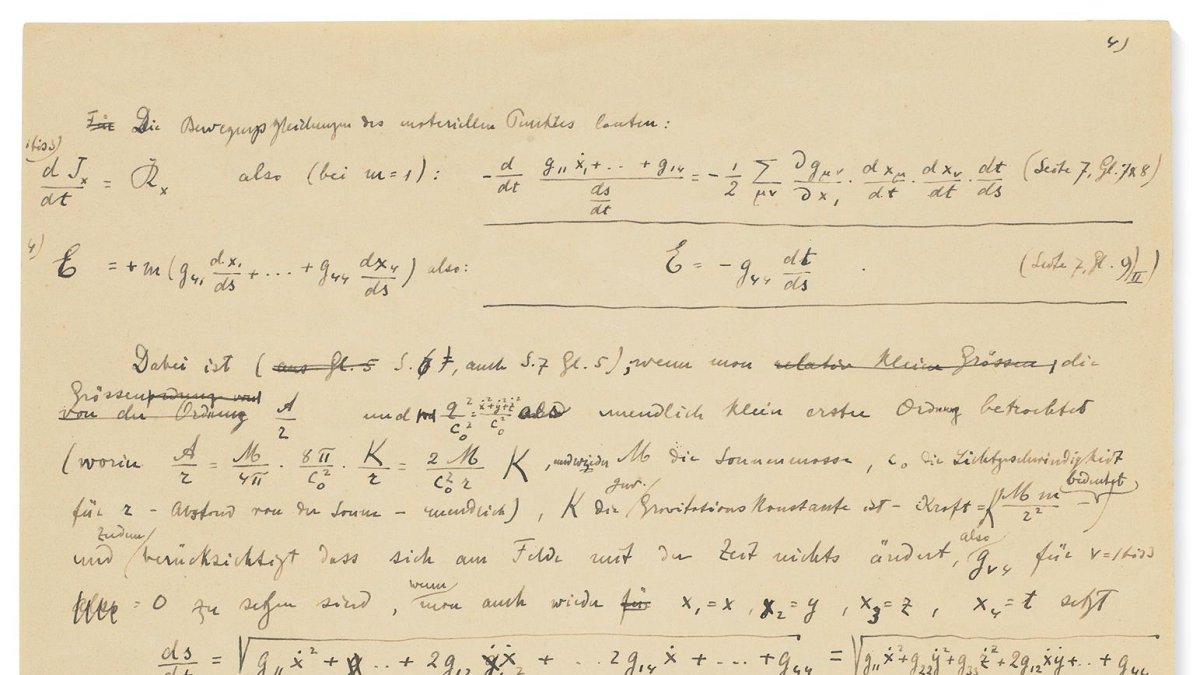 4)
Die Bewegungsgleichungen des materiellen Punktes lauten:
1bis3)
dJₓ/dt = 𝔎ₓ also (bei m=1): -d/dt (g₁₁ẋ₁+..+g₁₄)/(ds/dt) = -1/2 Σ_μν ∂g_μν/∂x₁ · dx_μ/dt · dx_ν/dt · dt/ds (Seite 7, Gl. 7&8)
4) E = +m(g₄₁ dx₁/ds + ... + g₄₄ dx₄/ds) also: E = -g₄₄ dt/ds . (Seite 7, Gl. 9)II)
Dabei ist (aus Gl. 5 S. 7, auch S. 7 Gl. 5), wenn man relativ kleine Grössen, die
Grössenordnung und
von der Ordnung A/r und q²/c₀² = (ẋ²+ẏ²+ż²)/c₀² als unendlich klein erster Ordnung betrachtet
(worin A/r = M/4π · 8π/c₀² · K/r = 2M/(c₀² r) K, M die Sonnenmasse, c₀ die Lichtgeschwindigkeit
für r - Abstand von der Sonne - unendlich), K die Gravitationskonstante ist - Kraft = (Mm/r² - bedeutet)
und zudem berücksichtigt dass sich am Felde mit der Zeit nichts ändert, also g_ν4 für ν=1bis3
= 0 zu setzen sind, wenn man auch wieder für x₁=x, x₂=y, x₃=z, x₄=t setzt
ds/dt = √(g₁₁ẋ²+...+2g₁₂ẋ + ... 2g₁₄ẋ + ... + g₄₄) = √(g₁₁ẋ²+g₂₂ẏ²+g₃₃ż²+2g₁₂ẋẏ+..+g₄₄